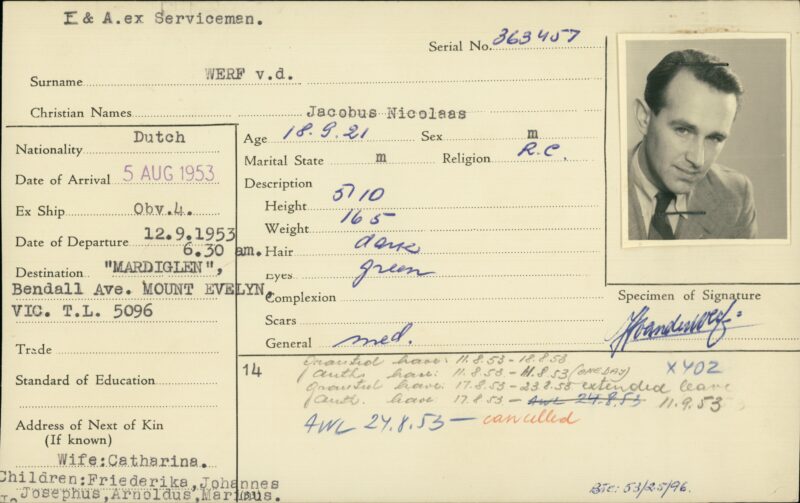 E & A.ex Serviceman.
Serial No. 363457
Surname WERF v.d.
Christian Names Jacobus Nicolaas
Nationality Dutch
Date of Arrival 5 AUG 1953
Ex Ship Obv.4.
Date of Departure 12.9.1953
6.30 am.
Destination "MARDIGLEN",
Bendall Ave. MOUNT EVELYN,
VIC. T.L. 5096
Trade
Standard of Education
Address of Next of Kin
(If known)
Wife:Catharina.
Children:Friederika,Johannes
Josephus,Arnoldus,Marinus.
Age 18.9.21 Sex m
Marital State m Religion R.C.
Description
Height 5/10
Weight 165
Hair dark
Eyes green
Complexion
Scars
General med.
Specimen of Signature
JVanderWerf
14
Granted leave: 11.8.53 - 18.8.53
Auth. leave: 11.8.53 - 11.8.53 (ONE DAY) X402
Granted leave: 17.8.53 - 23.8.53 extended leave
Auth. leave 17.8.53 - AWL 24.8.53 11.9.53
AWL 24.8.53 - cancelled
BTC: 53/25/96.